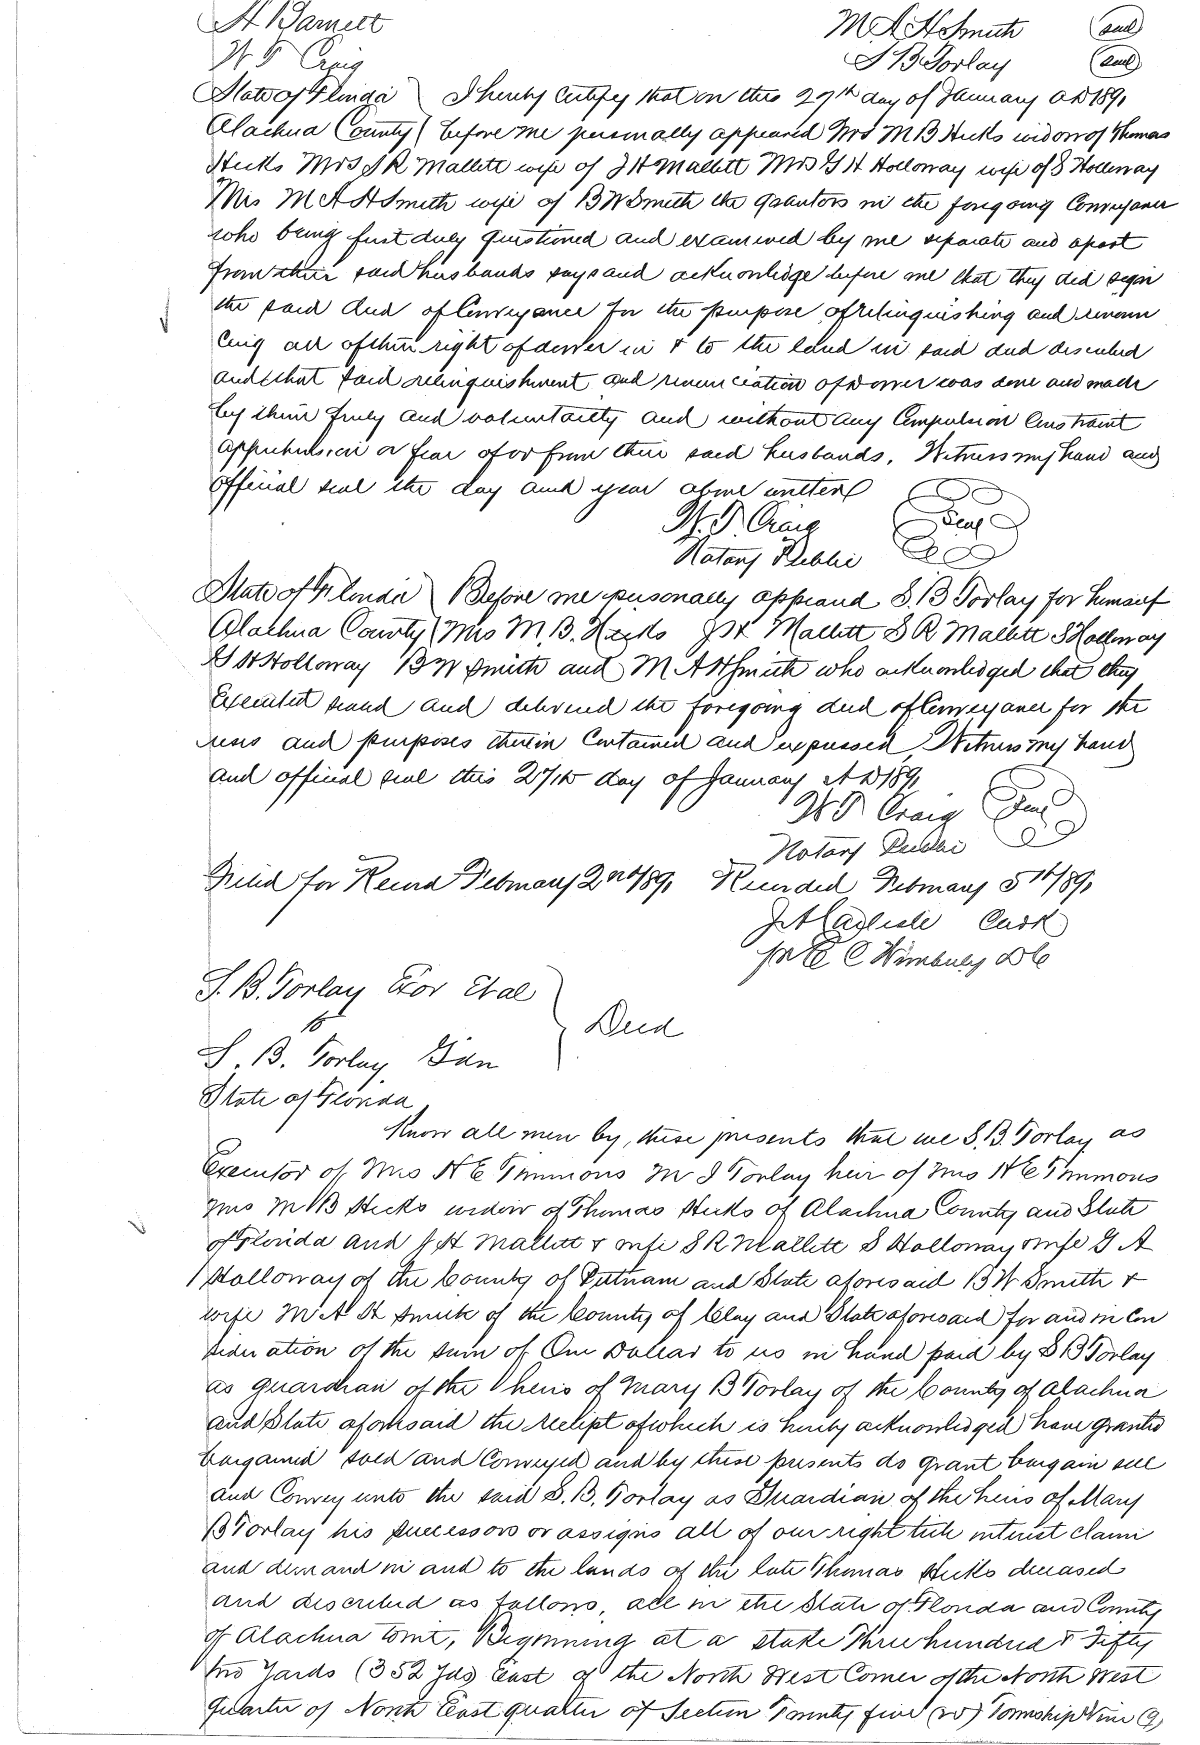 A Barnett M A H Smith (seal)
W T Craig S B Torlay (seal)
State of Florida ) I hereby Certify that on this 27th day of January AD 1891
Alachua County ( before me personally appeared Mrs M B Hicks widow of Thomas
Hicks Mrs S R Mallett wife of J H Mallett Mrs G A Holloway wife of S Holloway
Mrs M A H Smith wife of B W Smith the grantors in the foregoing Conveyance
who being first duly questioned and examined by me separate and apart
from their said husbands says and acknowledge before me that they did sign
the said deed of Conveyance for the purpose of relinquishing and renoun
cing all of their right of dower in & to the land in said deed described
and that said relinquishment and renunciation of Dower was done and made
by them freely and voluntarily and without any Compulsion Constraint
apprehension or fear of or from their said husbands. Witness my hand and
official seal the day and year above written
W. T. Craig Seal
Notary Public
State of Florida ) Before me personally appeared S. B Torlay for himself
Alachua County ( Mrs M. B. Hicks J H Mallett S R Mallett S Holloway
G A Holloway B W Smith and M A H Smith who acknowledged that they
Executed sealed and delivered the foregoing deed of Conveyance for the
uses and purposes therein Contained and expressed Witness my hand
and official seal this 27th day of January A D 1891
W T Craig Seal
Notary Public
Filed for Record February 2nd 1891 Recorded February 5th 1891
J A Carlisle Clerk
pr E C Wimberly D C
S. B. Torlay Exor Et al
to ) Deed
S. B. Torlay Gdn
State of Florida
Know all men by these presents that we S. B. Torlay as
Executor of Mrs H E Timmons M J Torlay heir of Mrs H E Timmons
Mrs M B Hicks widow of Thomas Hicks of Alachua County and State
of Florida and J H Mallett & wife S R Mallett S Holloway & wife G A
Holloway of the County of Putnam and State aforesaid B W Smith &
wife M A H Smith of the County of Clay and State aforesaid for and in Con
sideration of the sum of One Dollar to us in hand paid by S B Torlay
as guardian of the heirs of Mary B Torlay of the County of Alachua
and State aforesaid the receipt of which is hereby acknowledged have granted
bargained sold and Conveyed and by these presents do grant bargain sell
and Convey unto the said S. B. Torlay as Guardian of the heirs of Mary
B Torlay his successors or assigns all of our right title interest claim
and demand in and to the lands of the late Thomas Hicks deceased
and described as follows, all in the State of Florida and County
of Alachua towit, Beginning at a stake Three hundred & Fifty
two Yards (352 Yds) East of the North West Corner of the North West
quarter of North East quarter of Section Twenty five (25) Township Nine (9)